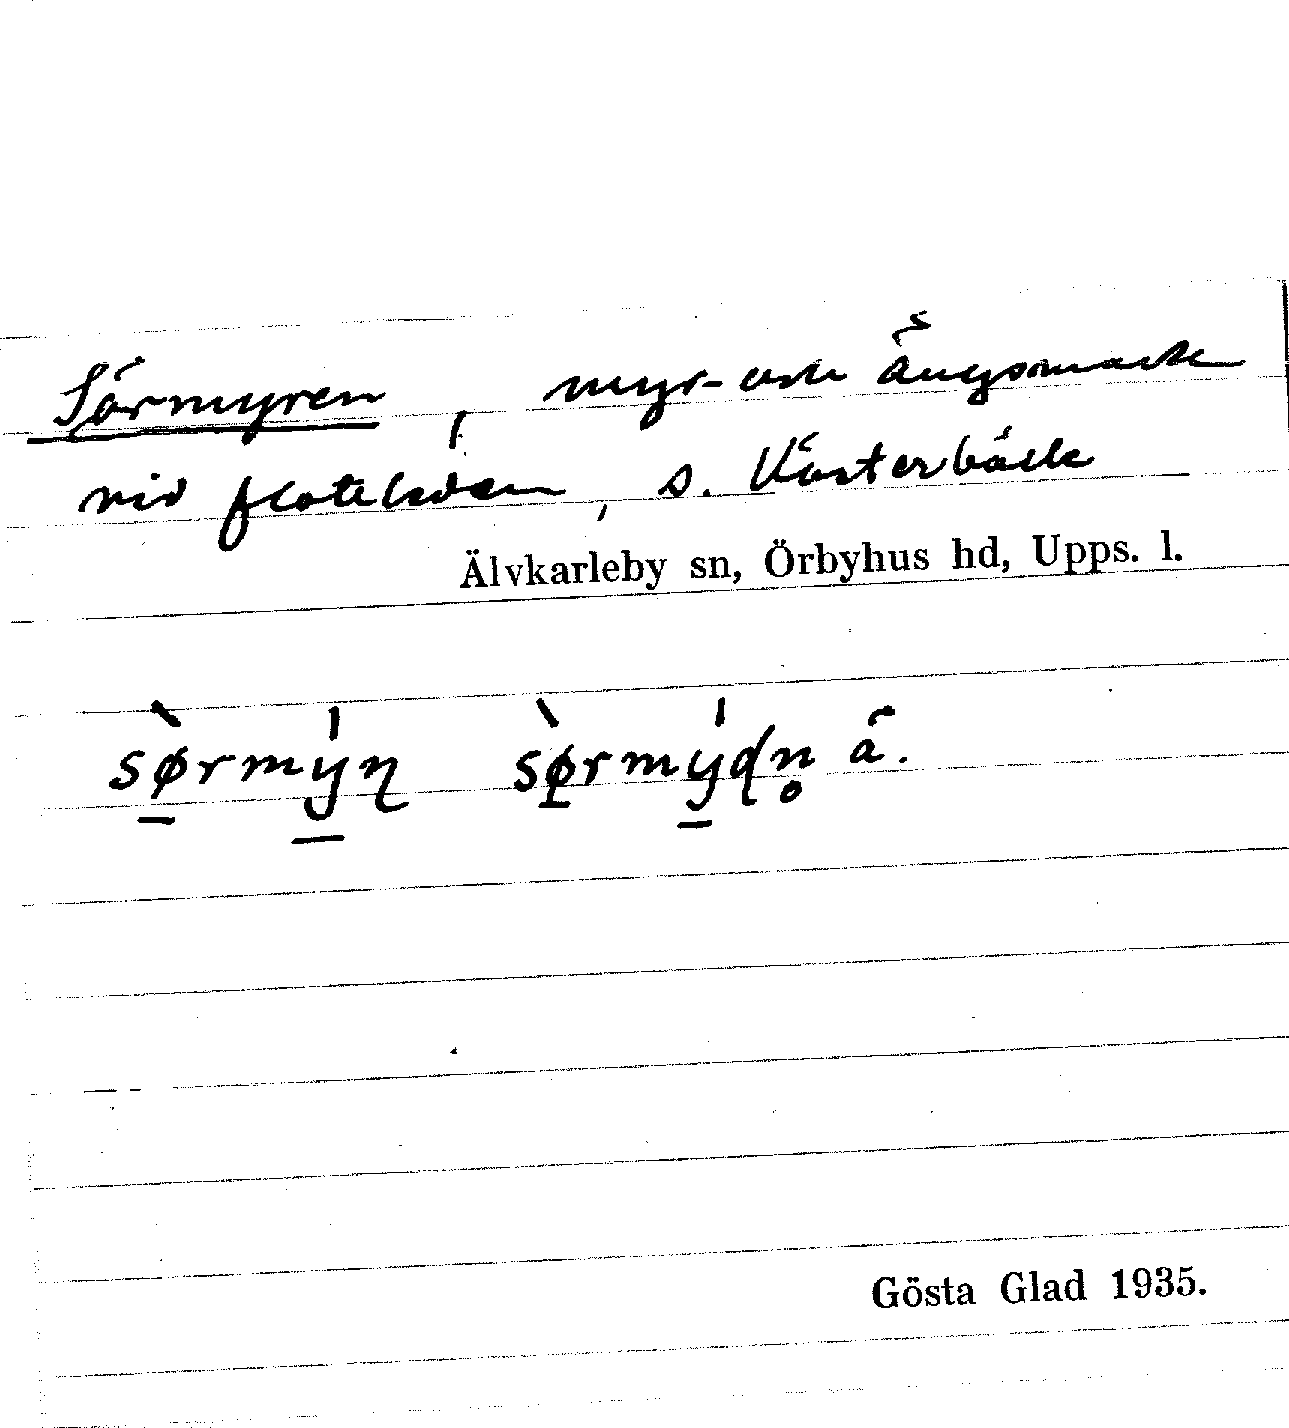 Sörmyren, myr- och ängsmark
vid flottleden, s. Västerbäck
Älvkarleby sn, Örbyhus hd, Upps. l.
sø̠̀rmý̠ɳ sø̠̀rmý̠ɖn̥ ä.
Gösta Glad 1935.